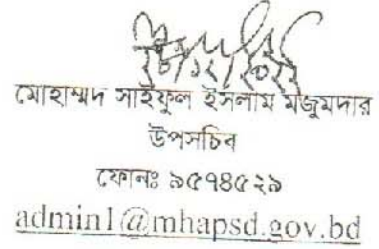 মোহাম্মদ সাইফুল ইসলাম মজুমদার
উপসচিব
ফোনঃ ৯৫৭৪৫২৯
admin1@mhapsd.gov.bd